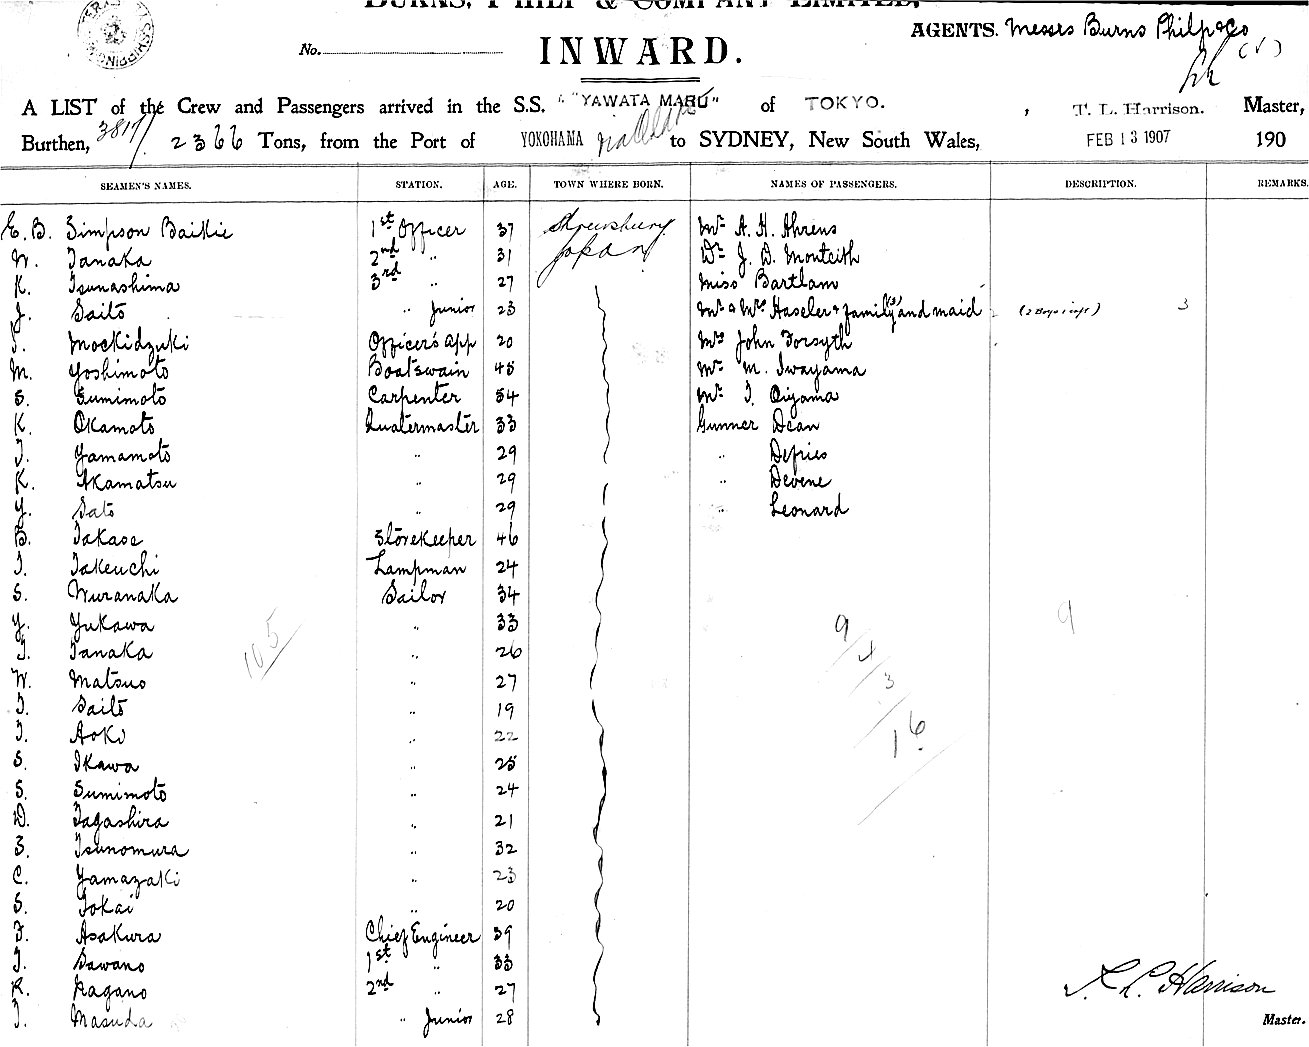 BURNS, PHILP & COMPANY LIMITED.
AGENTS. Messrs Burns Philp & Co
No.
INWARD.
A LIST of the Crew and Passengers arrived in the S.S. "YAWATA MARU" of TOKYO. , T. L. Harrison. Master,
Burthen, 3817/2366 Tons, from the Port of YOKOHAMA to SYDNEY, New South Wales, FEB 13 1907 190
SEAMEN'S NAMES. STATION. AGE. TOWN WHERE BORN. NAMES OF PASSENGERS. DESCRIPTION. REMARKS.
E. B. Simpson Baikie 1st Officer 37 Shrewsbury Mr A. H. Ahrens
N. Tanaka 2nd " 31 Japan Dr J. D. Monteith
K. Tsunashima 3rd " 27 Miss Bartlam
J. Saito " Junior 23 Mr & Mrs Haseler & family (3) and maid (2 Boys 1 inft) 3
T. Mockidzuki Officer's App 20 Mrs John Forsyth
M. Yoshimoto Boatswain 45 Mr M. Iwayama
S. Sumimoto Carpenter 54 Mr T. Oiyama
K. Okamoto Quatermaster 33 Gunner Dean
T. Yamamoto " 29 " Defries
K. Akamatsu " 29 " Devene
Y. Sato " 29 " Leonard
B. Takase Storekeeper 46
T. Takeuchi Lampman 24
S. Nuranaka Sailor 34
Y. Yukawa " 33
T. Tanaka " 26
N. Matsuo " 27
T. Saito " 19
T. Aoki " 22
S. Ikawa " 25
S. Sumimoto " 24
D. Tagashira " 21
S. Tsunomura " 32
C. Yamazaki " 23
S. Tokai " 20
F. Asakura Chief Engineer 39
T. Sawano 1st " 33
K. Kagano 2nd " 27
T. Masuda " Junior 28
105
9
4
3
16
9
T. L. Harrison
Master.